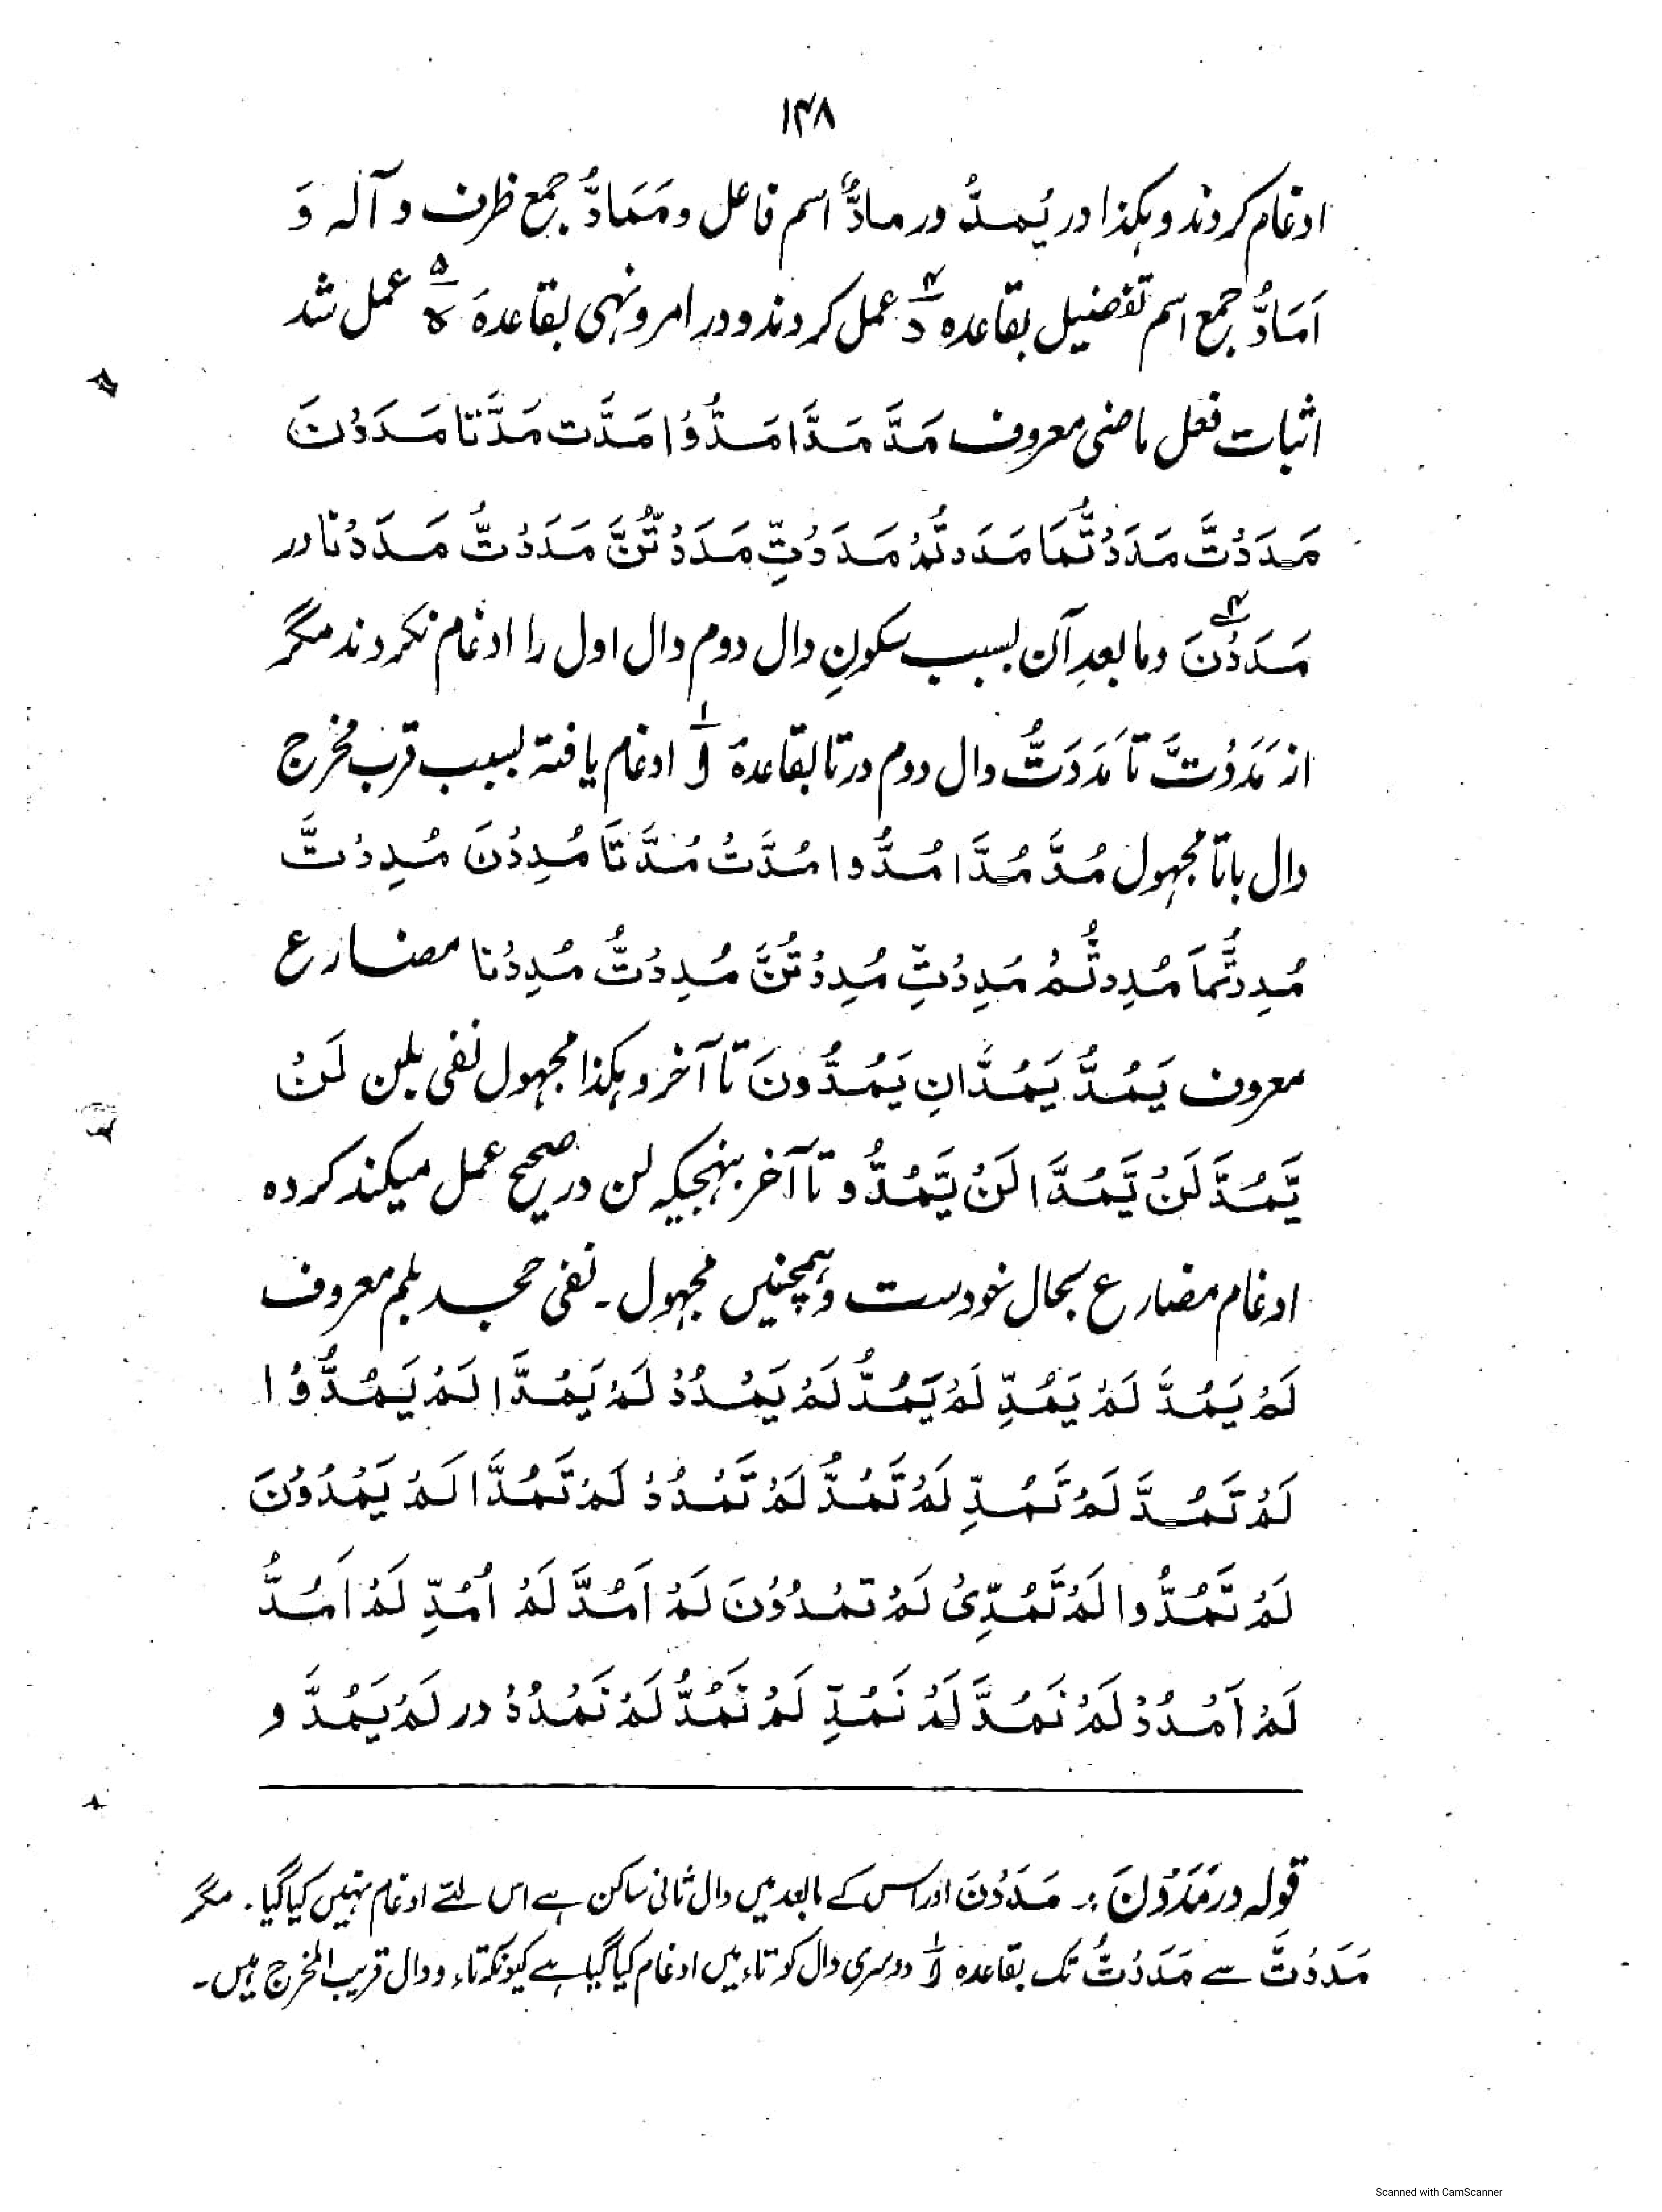 ۱۴۸
ادغام کردند و ہکذا در یُمَدُّ در مادٌّ اسم فاعل و مَمَادُّ جمع ظرف و آلہ وَ
اَمَادُّ جمع اسم تفضیل بقاعدہ ۴ د عمل کردند و در امر و نہی بقاعدہَ ۵ ہ عمل شد
اثبات فعل ماضی معروف مَدَّ مَدَّا مَدُّوْا مَدَّت مَدَّتَا مَدَدْنَ
مَدَدْتَّ مَدَدْتُّمَا مَدَدتُّمْ مَدَدْتِّ مَدَدْتُّنَّ مَدَدْتُّ مَدَدْنَا در
مَدَدْنَ ۴ وما بعدِ آن بسبب سکونِ دال دوم دال اول را ادغام نکردند مگر
از مَدَدْتَّ تا مَدَدتُّ دال دوم در تا بقاعدۂ ۱ ادغام یافتہ بسبب قرب مخرج
دال با تا مجہول مُدَّ مُدَّا مُدُّوا مُدَّتْ مُدَّتَا مُدِدْنَ مُدِدْتَّ
مُدِدتُّمَا مُدِدتُّمْ مُدِدْتِّ مُدِدْتُّنَّ مُدِدْتُّ مُدِدْنَا مضارع
معروف یَمُدُّ یَمُدَّانِ یَمُدُّونَ تا آخر و ہکذا مجہول نفی بلن لَنْ
یَّمُدَّ لَنْ یَّمُدَّا لَنْ یَّمُدُّو تا آخر بنہجیکہ لن در صحیح عمل میکند کردہ
ادغام مضارع بحال خودست و ہمچنیں مجہول۔ نفی جحد بلم معروف
لَمْ یَمُدَّ لَمْ یَمُدِّ لَمْ یَمُدُّ لَمْ یَمْدُدْ لَمْ یَمُدَّا لَمْ یَمُدُّوْا
لَمْ تَمُدَّ لَمْ تَمُدِّ لَمْ تَمُدُّ لَمْ تَمْدُدْ لَمْ تَمُدَّا لَمْ یَمْدُدْنَ
لَمْ تَمُدُّوا لَمْ تَمُدِّیْ لَمْ تَمْدُدْنَ لَمْ اَمُدَّ لَمْ اَمُدِّ لَمْ اَمُدُّ
لَمْ اَمْدُدْ لَمْ نَمُدَّ لَمْ نَمُدِّ لَمْ نَمُدُّ لَمْ نَمْدُدْ در لَمْ یَمُدَّ و
قولہ در مَدَدْنَ :۔ مَدَدْنَ اور اس کے مابعد میں دال ثانی ساکن ہے اس لئے ادغام نہیں کیا گیا۔ مگر
مَدَدْتَّ سے مَدَدْتُّ تک بقاعدہ ۱ دوسری دال کو تاء میں ادغام کیا گیا ہے کیونکہ تاء و دال قریب المخرج ہیں۔
Scanned with CamScanner